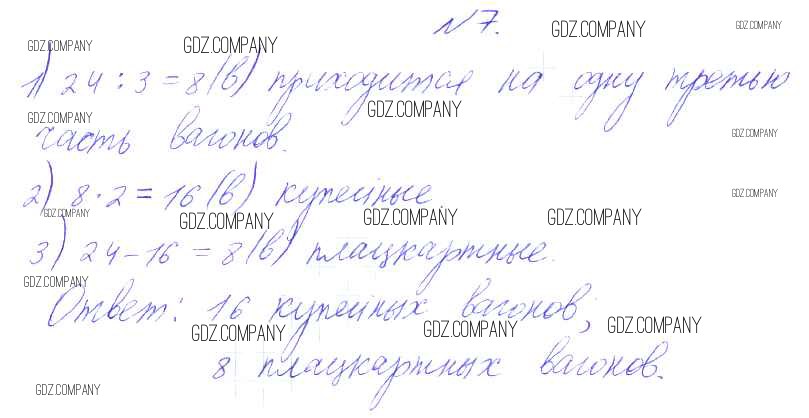 №7.
1) 24 : 3 = 8 (в) приходится на одну третью
часть вагонов.
2) 8 · 2 = 16 (в) купейные
3) 24 - 16 = 8 (в) плацкартные.
Ответ: 16 купейных вагонов;
8 плацкартных вагонов.
GDZ.COMPANY GDZ.COMPANY GDZ.COMPANY GDZ.COMPANY
GDZ.COMPANY GDZ.COMPANY GDZ.COMPANY
GDZ.COMPANY
GDZ.COMPANY GDZ.COMPANY GDZ.COMPANY GDZ.COMPANY
GDZ.COMPANY
GDZ.COMPANY GDZ.COMPANY GDZ.COMPANY
GDZ.COMPANY